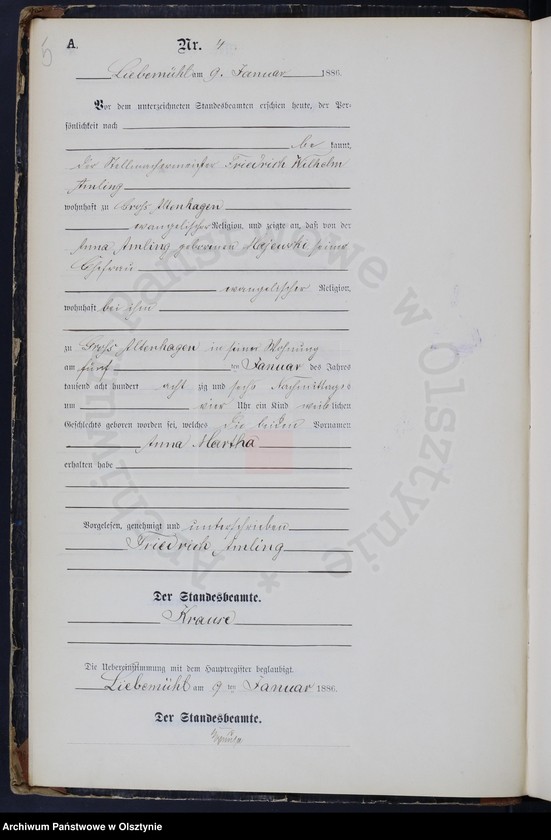 5
A. Nr. 4
Liebemühl am 9. Januar 1886.
Vor dem unterzeichneten Standesbeamten erschien heute, der Per-
sönlichkeit nach
be kannt,
der Stellmachermeister Friedrich Wilhelm
Amling
wohnhaft zu Gross Altenhagen
evangelischer Religion, und zeigte an, daß von der
Anna Amling geborenen Majewski seiner
Ehefrau
evangelischer Religion,
wohnhaft bei ihm
zu Gross Altenhagen in seiner Wohnung
am fünf ten Januar des Jahres
tausend acht hundert acht zig und sechs Nachmittags
um vier Uhr ein Kind weiblichen
Geschlechts geboren worden sei, welches die beiden Vornamen
Anna Martha
erhalten habe
Vorgelesen, genehmigt und unterschrieben
Friedrich Amling
Der Standesbeamte.
Krause
Die Uebereinstimmung mit dem Hauptregister beglaubigt.
Liebemühl am 9 ten Januar 1886.
Der Standesbeamte.
Archiwum Państwowe w Olsztynie *
Archiwum Państwowe w Olsztynie